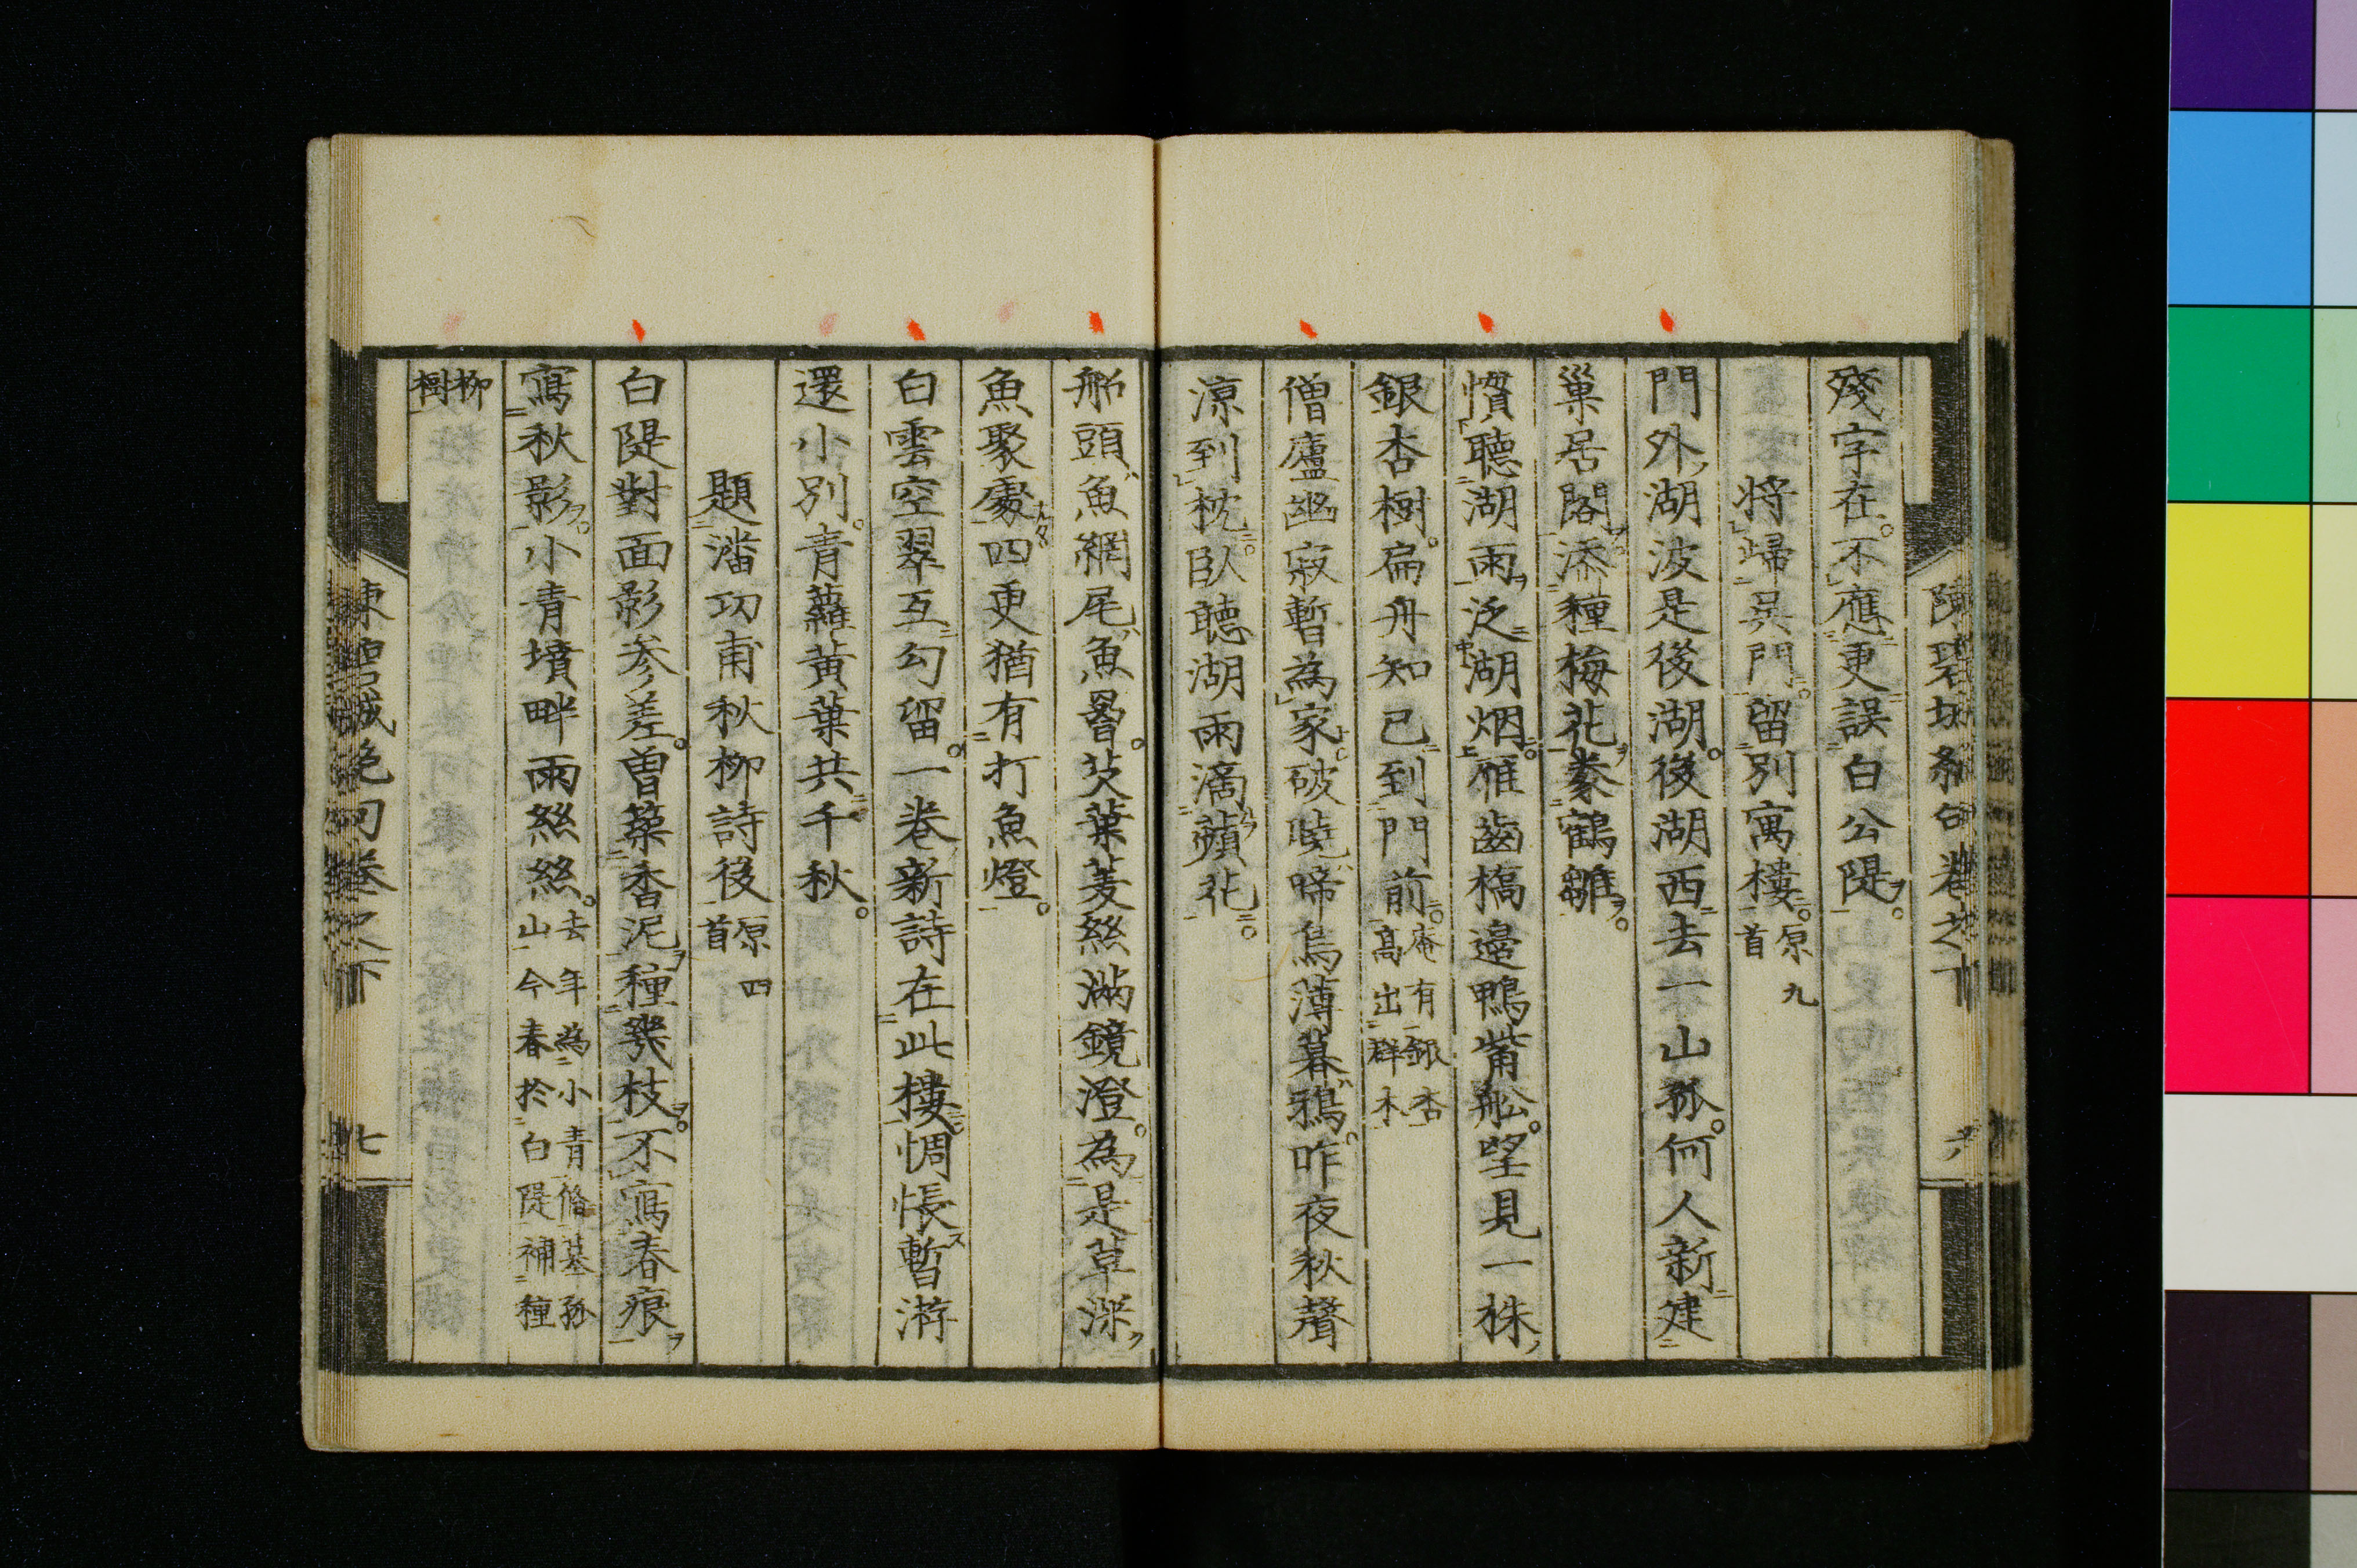 殘字在不應更誤白公隄
將歸吳門留別寓樓原九首
門外湖波是後湖後湖西去一山孤何人新建
巢居閣添種梅花豢鶴雛
慣聽湖雨泛湖烟雁齒橋邊鴨觜舩望見一株
銀杏樹扁舟知已到門前庵有銀杏高出群木
僧廬幽寂暫為家破曉啼烏薄暮鴉昨夜秋聲
涼到枕臥聽湖雨滴蘋花
船頭魚網尾魚罾芡葉菱絲滿鏡澄為是草深
魚聚處四更猶有打魚燈
白雲空翠互勾留一卷新詩在此樓惆悵暫游
還小別青蘿黃葉共千秋
題潘功甫秋柳詩後原四首
白隄對面影参差曾築香泥種幾枝不寫春痕
寫秋影小青墳畔雨絲絲去年為小青脩墓孤山今春於白隄補種
柳樹
絶句卷之下
七